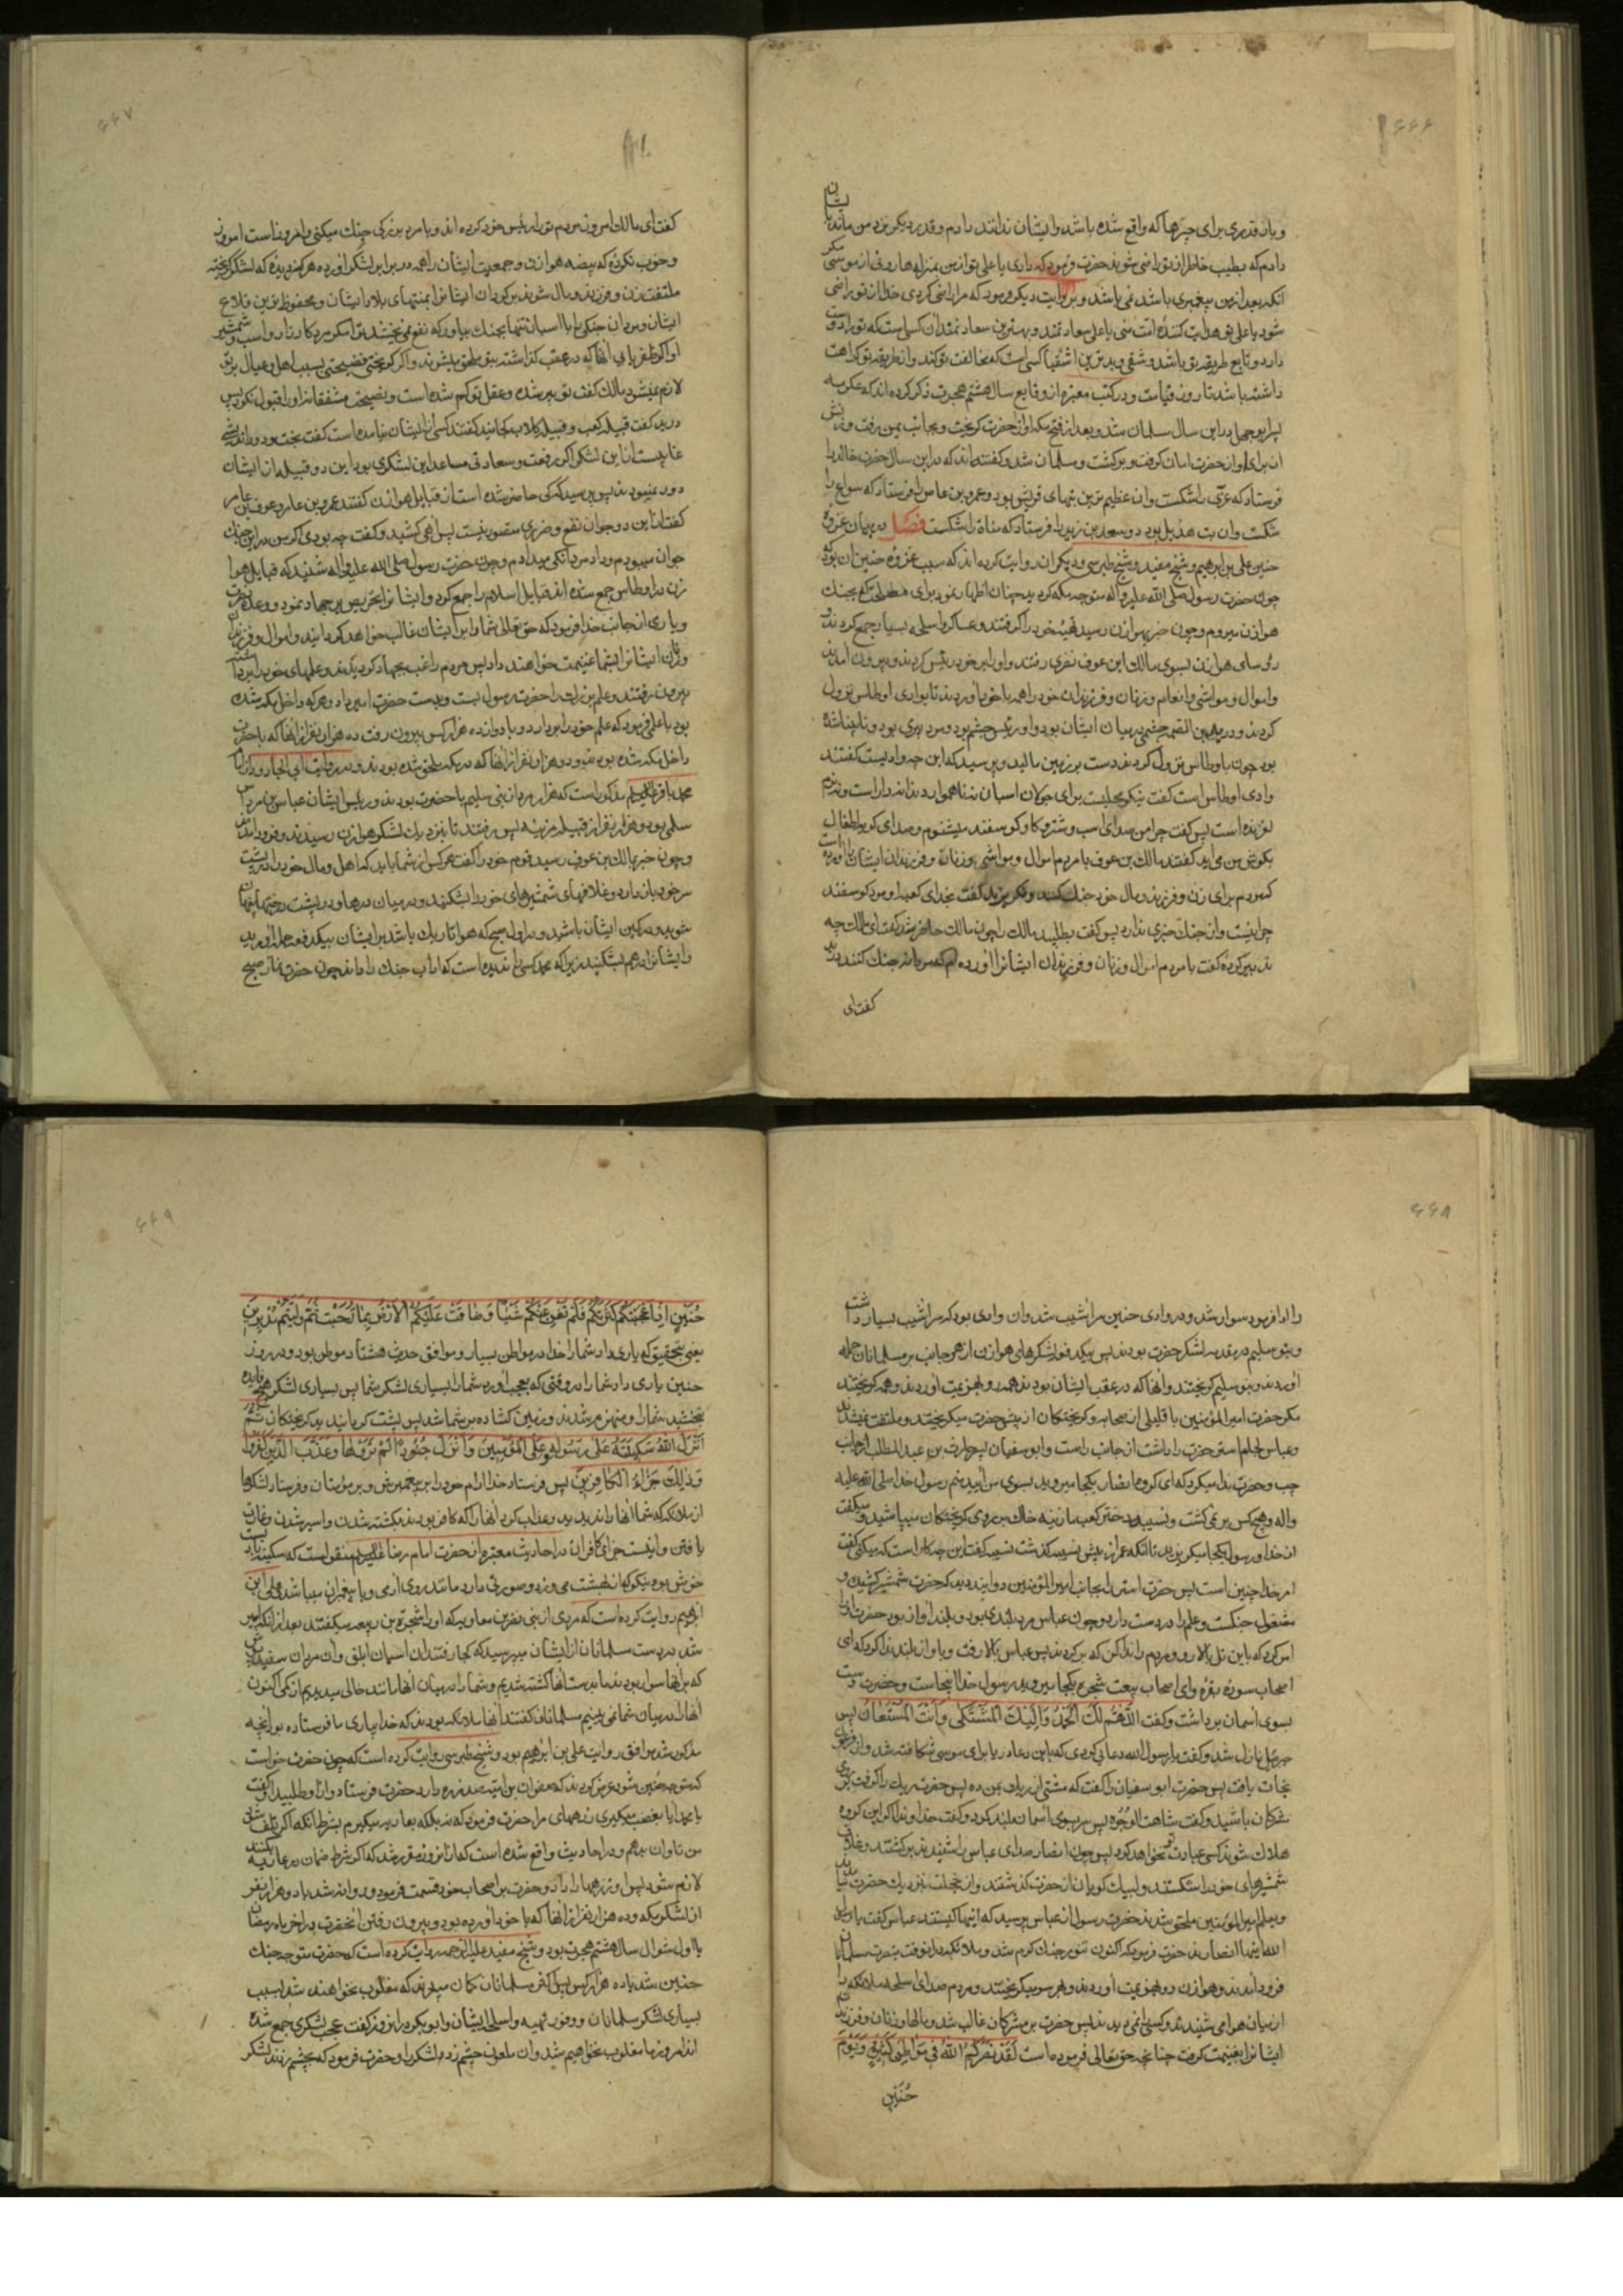 ۶۶۶
و بازقدری برای چیزها که واقع شده باشد و ایشان ندانند دادم و قدر دیگر نزد من ماند بایشان
دادم که بطیب خاطر از تو راضی شوند حضرت فرمود که داری یا علی تو از من بمنزله هارونی از موسی مگر
آنکه بعد از من پیغمبری باشد نمی باشد و بروایت دیگر فرمود که مرا راضی کردی خدا از تو راضی
شود یا علی تو هدایت کننده امت منی یا علی سعادتمند و بهترین سعادتمندان کسیاست که ترا دوست
دارد و تابع طریقه تو باشد و شقی و بدترین اشقیا کسی است که مخالفت تو کند و از طریقه تو کراهت
داشته باشد تا روز قیامت و در کتب معتبره از وقایع سال هشتم هجرت ذکر کرده اند که عکرمه
پسر ابو جهل در این سال مسلمان شد و بعد از فتح مکه از حضرت گریخت و بجانب یمن رفت و زنش
از برای او از حضرت امان گرفت و برگشت و مسلمان شد و گفته اند که در این سال حضرت خالد را
فرستاد که عزی را شکست و آن عظیم ترین بتهای قریش بود و عمرو بن عاص را فرستاد که سواع را
شکست و آن بت هذیل بود و سعد بن زید را فرستاد که مناة را شکست فصل در بیان غزوه
حنین علی بن ابرهیم و شیخ مفید و شیخ طبرسی و دیگران روایت کرده اند که سبب غزوه حنین آن بود که
چون حضرت رسول صلی الله علیه و آله متوجه مکه گردید چنان اظهار نمود برای بجنک
هوازن میروم و چون خبر بهوازن رسید تهیه خود را گرفتند و عساکر و اسلحه بسیار جمع کردند و
رؤسای هوازن بسوی مالک ابن عوف نضری رفتند و او را بر خود رئیس کردند و بیرون آمدند
و اموال و مواشی و انعام و زنان و فرزندان خود را همه با خود آوردند تا بوادی اوطاس نزول
کردند و درید بن الصمه جشمی در میان ایشان بود و او رئیس جشم بود و مرد پیری بود و نابینا شده
بود چون باوطاس نزول کردند دست بر زمین مالید و پرسید که این چه وادیست گفتند
وادی اوطاس است گفت نیکو محلیست برای جولان اسبان نه ناهموار دندانه دار است و نه نرم
لغزنده است پس گفت چرا من صدای اسب و شتر و گاو و گوسفند میشنوم و صدای گریه اطفال
بگوش من می آید گفتند مالک بن عوف با مردم اموال و مواشی و زنان و فرزندان ایشان را آورده است
که مردم برای زن و فرزند و مال خود جنک کنند و نگریزند گفت بخدای کعبه او مرد گوسفند
چرانیست و از جنک خبری ندارد پس گفت بطلبید مالک را چون مالک حاضر شد گفت ای مالک چه
تدبیر کرده گفت با مردم اموال و زنان و فرزندان ایشانرا آورده ام که مردانه جنک کنند درید
گفت ای
۶۶۷
گفت ای مالک امروز مردم تو را رئیس خود کرده اند و با مرد بزرگی جنک میکنی و امروز است امروز
و خوب نکردی که بیضه هوازن و جمعیت ایشان را همه در برابر لشکر آورده هرگز ندیده که لشکر گریخته
ملتفت زن و فرزند و مال شوند برگردان ایشانرا بمنتهای بلاد ایشان و محفوظ ترین قلاع
ایشان و مردان جنگی را با اسبان تنها بجنک بیاور که نفع نمی بخشد ترا مگر مرد کارزار و اسب و شمشیر
اگر ظفر یابی آنها که در عقب گذاشته بتو ملحق میشوند و اگر گریختی فضیحتی بسبب اهل و عیال بر تو
لازم نمیشود مالک گفت تو پیر شده و عقل تو کم شده است و نصیحت مشفقانه او را قبول نکرد پس
درید گفت قبیله کعب و قبیله کلاب کجایند گفتند کسی از ایشان نیامده است گفت بخت و دوراندیشی
غایبست از این لشکر اگر رفعت و سعادتی مساعد این لشکر می بود این دو قبیله از ایشان
دور نمیبودند پس پرسید که کی حاضر شده است از قبایل هوازن گفتند عمرو بن عامر و عوف بن عامر
گفت از این دو جوان نفع و ضرری متصور نیست پس آهی کشید و گفت چه بودی اگر من در این جنک
جوان میبودم و داد مردانگی میدادم و چون حضرت رسول صلی الله علیه و آله شنید که قبایل هوا
زن در اوطاس جمع شده اند قبایل اسلام را جمع کرد و ایشانرا تحریص بر جهاد نمود و وعده نصرت
و یاری از جانب خدا فرمود که حق تعالی شما را بر ایشان غالب خواهد گردانید و اموال و فرزندان
و زنان ایشانرا بشما غنیمت خواهند داد پس مردم راغب بجهاد گردیدند و علمهای خود را برداشته
بیرون رفتند و علم بزرک را حضرت رسول بست و بدست حضرت امیر داد و هر که داخل مکه شده
بود با علمی فرمود که علم خود را بردارد و با دوازده هزار کس بیرون رفت ده هزار نفر از آنها که با حضرت
داخل مکه شده بودند و دو هزار نفر از آنها که در مکه ملحق شده بودند و در روایت ابی الجارود از امام
محمد باقر علیه السلام مذکور است که هزار مرد از بنی سلیم با حضرت بودند و رئیس ایشان عباس بن مرداس
سلمی بود و هزار نفر از قبیله مزینه پس رفتند تا بنزدیک لشکر هوازن رسیدند و فرود آمدند
و چون خبر بمالک بن عوف رسید قوم خود را گفت هر کس از شما باید که اهل و مال خود را در پشت
سر خود بازدارد و غلافهای شمشیرهای خود را بشکنید و در میان درهها و در پشت درختها پنهان
شوید و در کمین ایشان باشید و در اول صبح که هوا تاریک باشد بر ایشان بیکدفعه حمله آورید
و ایشانرا درهم بشکنید زیرا که محمد کسی را ندیده است که آداب جنک را داند چون حضرت نماز صبح
۶۶۸
را ادا فرمود سوار شد و در وادی حنین سرا شیب شد و آن وادی بود که سراشیب بسیار داشت
و بنو سلیم در مقدمه لشکر حضرت بودند پس بیکدفعه لشکرهای هوازن از هر جانب بر مسلمانان حمله
آوردند و بنو سلیم گریختند و آنها که در عقب ایشان بودند همه رو بهزیمت آوردند و همه گریختند
مگر حضرت امیر المؤمنین با قلیلی از صحابه و گریختگان از پیش حضرت میگریختند و ملتفت نمیشدند
و عباس لجام استر حضرت را داشت از جانب راست و ابو سفیان پسر حارث بن عبد المطلب از جانب
چپ و حضرت ندا میکرد که ای گروه انصار بکجا میروید بسوی من آیید منم رسول خدا صلی الله علیه
و اله و هیچ کس بر نمی گشت و نسیبه دختر کعب مازنیه خاک بر روی گریختگان میپاشید و میگفت
از خدا و رسول بکجا میگریزید تا آنکه عمر از پیش نسیبه گذشت نسیبه گفت این چه کار است که میکنی گفت
امر خدا چنین است پس حضرت استر را بجانب امیر المؤمنین دوانید دید که حضرت شمشیر کشیده و
مشغول جنکست و علم را در دست دارد و چون عباس مرد بلندی بود و بلند آواز بود حضرت او را
امر کرد که باین تل بالا رو و مردم را ندا کن که برگردند پس عباس بالا رفت و بآواز بلند ندا کرد که ای
اصحاب سوره بقره و ای اصحاب بیعت شجره بکجا میروید رسول خدا اینجاست و حضرت دست
بسوی آسمان برداشت و گفت اَللّٰهُمَّ لَكَ الْحَمْدُ وَ اِلَيْكَ الْمُشْتَكٰى وَ اَنْتَ الْمُسْتَعَانُ پس
جبرئیل نازل شد و گفت یا رسول الله دعائی کردی که باین دعا دریا برای موسی شکافته شد و از فرعون
نجات یافت پس حضرت ابو سفیان را گفت که مشتی از ریک بمن ده پس حضرت ریک را گرفت بر روی
مشرکان پاشید و گفت شاهت الوجوه پس سر بسوی آسمان بلند کرد و گفت خداوندا اگر این گروه
هلاک شوند کسی عبادت تو نخواهد کرد پس چون انصار صدای عباس را شنیدند برگشتند و غلاف
شمشیرهای خود را شکستند و لبیک گویان از حضرت گذشتند و از خجلت نزدیک حضرت نیامدند
و بعلم امیر المؤمنین ملحق شدند حضرت رسول از عباس پرسید که اینها کیستند عباس گفت یا رسول
الله اینها انصارند حضرت فرمود که اکنون تنور جنک گرم شد و ملائکه در آنوقت بنصرت مسلمانان
فرود آمدند و هوازن رو بهزیمت آوردند و بهر سو میگریختند و مردم صدای اسلحه ملائکه را
از میان هوا می شنیدند و کسی را نمی دیدند پس حضرت بر مشرکان غالب شد و مالها و زنان و فرزندان
ایشانرا بغنیمت گرفت چنانچه حق تعالی فرموده است لَقَدْ نَصَرَكُمُ اللّٰهُ فِي مَوَاطِنَ كَثِيرَةٍ وَ يَوْمَ
حُنَيْنٍ
۶۶۹
حُنَيْنٍ اِذْ اَعْجَبَتْكُمْ كَثْرَتُكُمْ فَلَمْ تُغْنِ عَنْكُمْ شَيْئًا وَ ضَاقَتْ عَلَيْكُمُ الْاَرْضُ بِمَا رَحُبَتْ ثُمَّ وَلَّيْتُمْ مُدْبِرِينَ
یعنی بتحقیق که یاری داد شما را خدا در مواطن بسیار و موافق حدیث هشتاد موطن بود و در روز
حنین یاری داد شما را در وقتی که بعجب آورد شما را بسیاری لشکر شما پس بسیاری لشکر هیچ فایده
نبخشید شما را و منهزم شدند و زمین گشاده بر شما شد پس پشت گردانیدید گریختگان ثُمَّ
اَنْزَلَ اللّٰهُ سَكِينَتَهُ عَلٰى رَسُولِهِ وَ عَلَى الْمُؤْمِنِينَ وَ اَنْزَلَ جُنُودًا لَمْ تَرَوْهَا وَ عَذَّبَ الَّذِينَ كَفَرُوا
وَ ذٰلِكَ جَزَاءُ الْكَافِرِينَ پس فرستاد خدا آرام خود را بر پیغمبرش و بر مؤمنان و فرستاد لشکرها
از ملائکه که شما آنها را ندیدید و عذاب کرد آنها را که کافر بودند بکشته شدن و اسیر شدن و غارت
یافتن و اینست جزای کافران در احادیث معتبره از حضرت امام رضا علیه السلام منقولست که سکینه بادیست
خوش بو و نیکو که از بهشت می وزد و صورتی دارد مانند روی آدمی و با پیغمبران میباشد و علی ابن
ابرهیم روایت کرده است که مردی از بنی نضر بن معاویه که او را شجرة بن ربیعه میگفتند بعد از آنکه اسیر
شد در دست مسلمانان از ایشان میپرسید که کجا رفتند آن اسبان ابلق و آن مردان سفید
که بر آنها سوار بودند ما بدست آنها کشته شدیم و شما را در میان آنها مانند خالی میدیدیم از کمی اکنون
آنها را در میان شما نمی بینیم مسلمانان گفتند آنها ملائکه بودند که خدا بیاری ما فرستاده بود آنچه
مذکور شد موافق روایت علی بن ابرهیم بود و شیخ طبرسی روایت کرده است که چون حضرت خواست
که متوجه حنین شود عرض کردند که صفوان بن امیه صد زره دارد حضرت فرستاد و آنها را طلبید او گفت
یا محمد آیا بغصب میگیری زرههای مرا حضرت فرمود که نه بلکه بعاریه میگیرم بشرط آنکه اگر تلف شود
من تاوان بدهم و در احادیث واقع شده است که از آنروز مقرر شد که اگر شرط ضمان در عاریه بکنند
لازم شود پس او زرهها را داد و حضرت بر اصحاب خود قسمت فرمود و روانه شد با دو هزار نفر
از لشکر مکه و ده هزار نفر از آنها که با خود آورده بود و بیرون رفتن آنحضرت در آخر ماه رمضان
یا اول شوال سال هشتم هجرت بود و شیخ مفید علیه الرحمه روایت کرده است که حضرت متوجه جنک
حنین شد با ده هزار کس پس اکثر مسلمانان گمان میبردند که مغلوب نخواهند شد بسبب
بسیاری لشکر مسلمانان و وفور تهیه و اسلحه ایشان و ابو بکر در آنروز گفت عجب لشکری جمع شده
اند امروز ما مغلوب نخواهیم شد و آن ملعون چشم زد لشکر را و حضرت فرمود که بچشم زدند لشکر